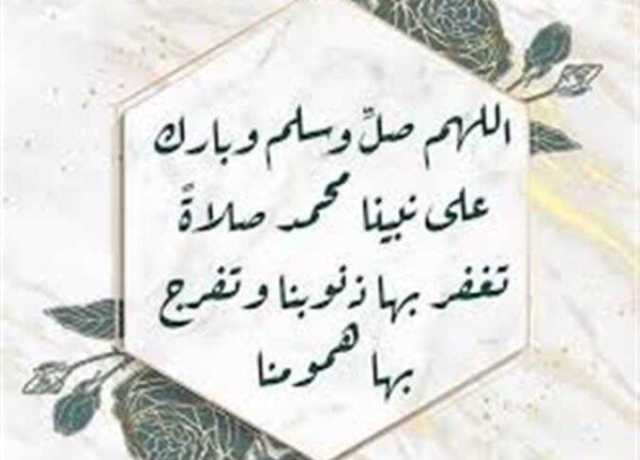 اللهم صلِّ وسلم وبارك
على نبينا محمد صلاةً
تغفر بها ذنوبنا وتفرج
بها همومنا